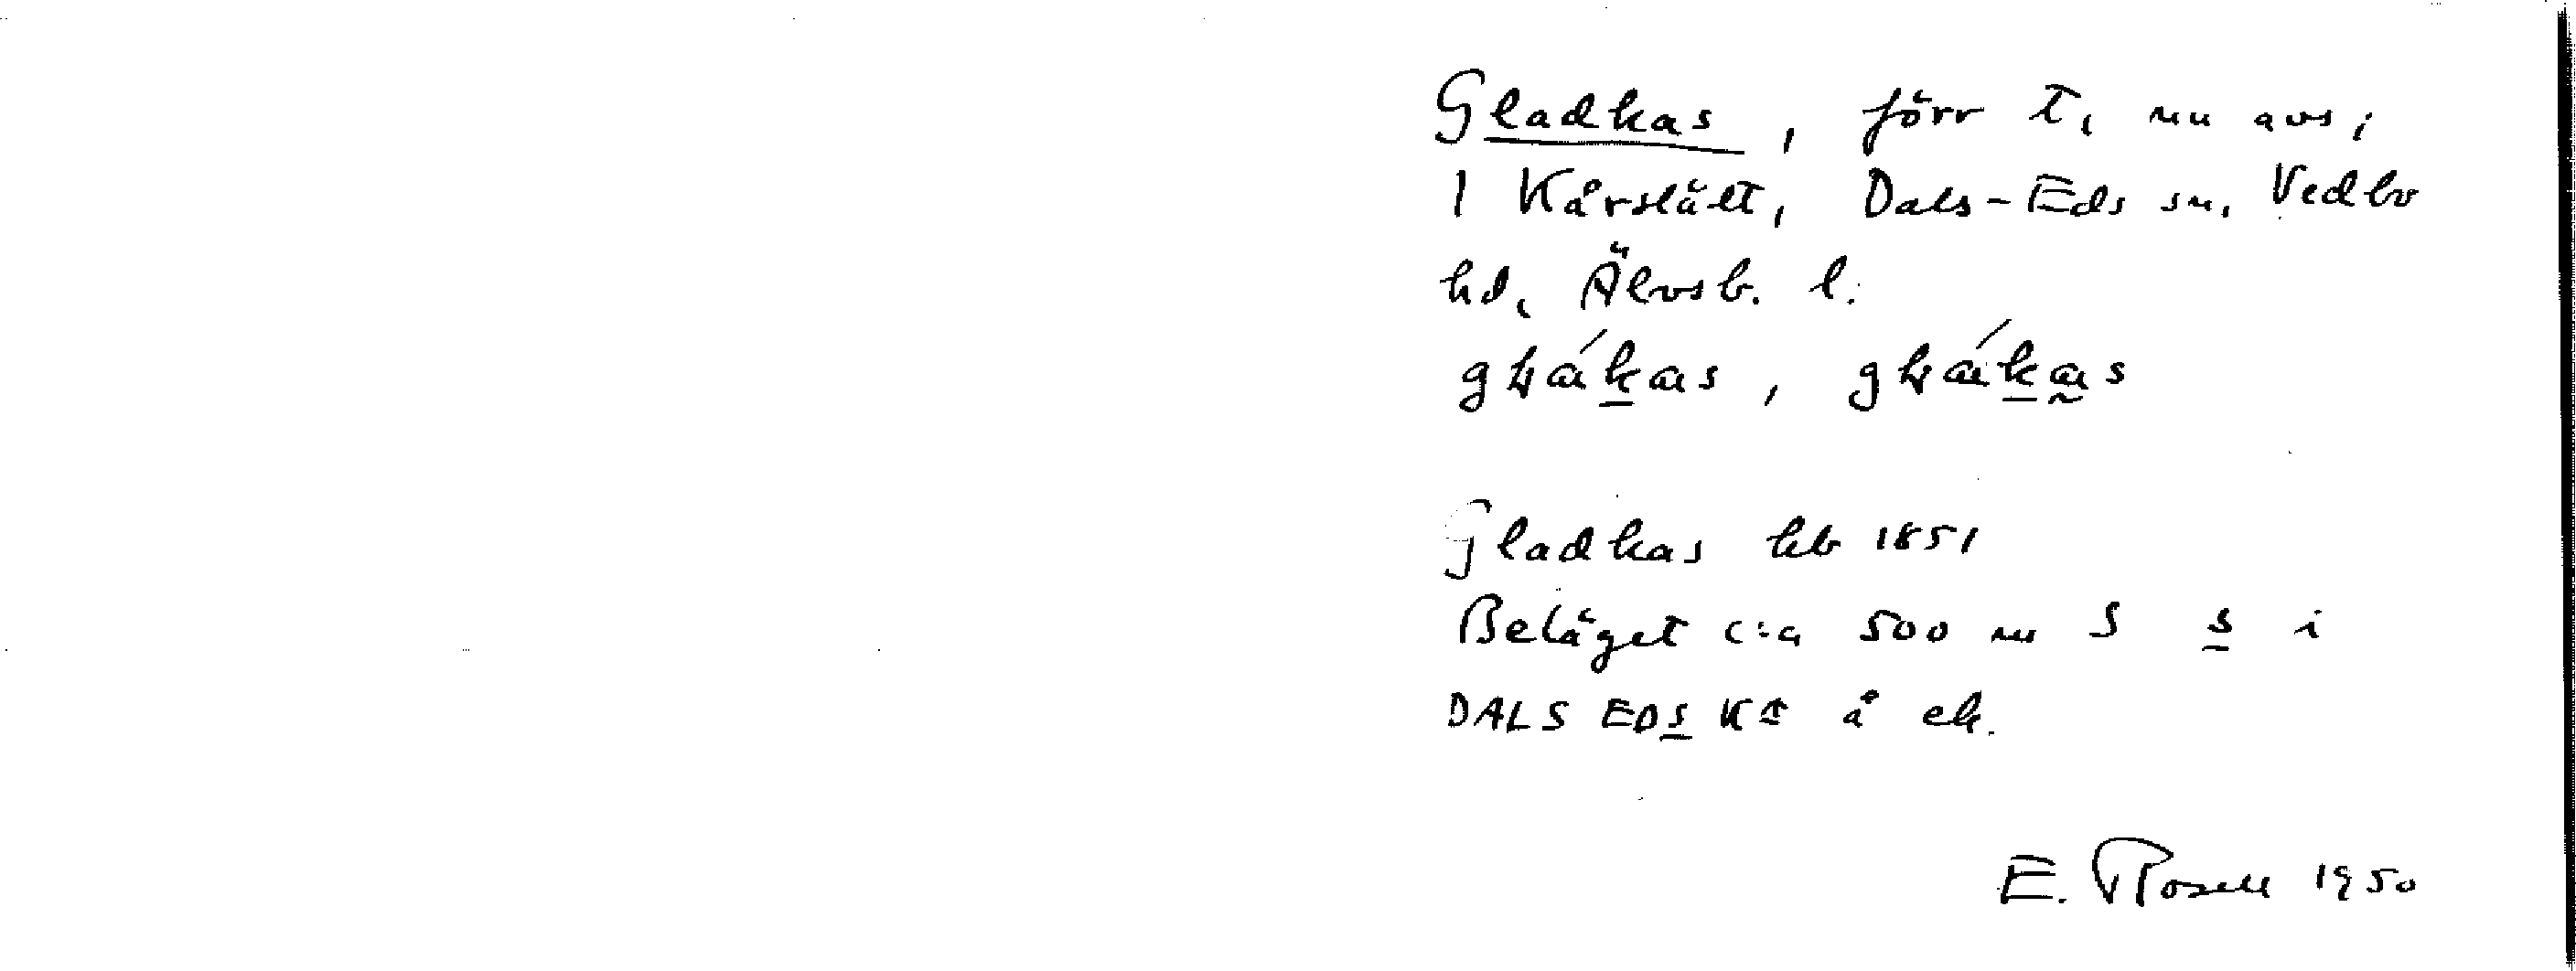 Gladkas, förr t, nu avs,
1 Kårslätt, Dals-Eds sn, Vedbo
hd, Älvsb. l.
Gladkas kb 1851
Beläget c:a 500 m S s i
DALS EDS Ka å ek.
E. Rosell 1950